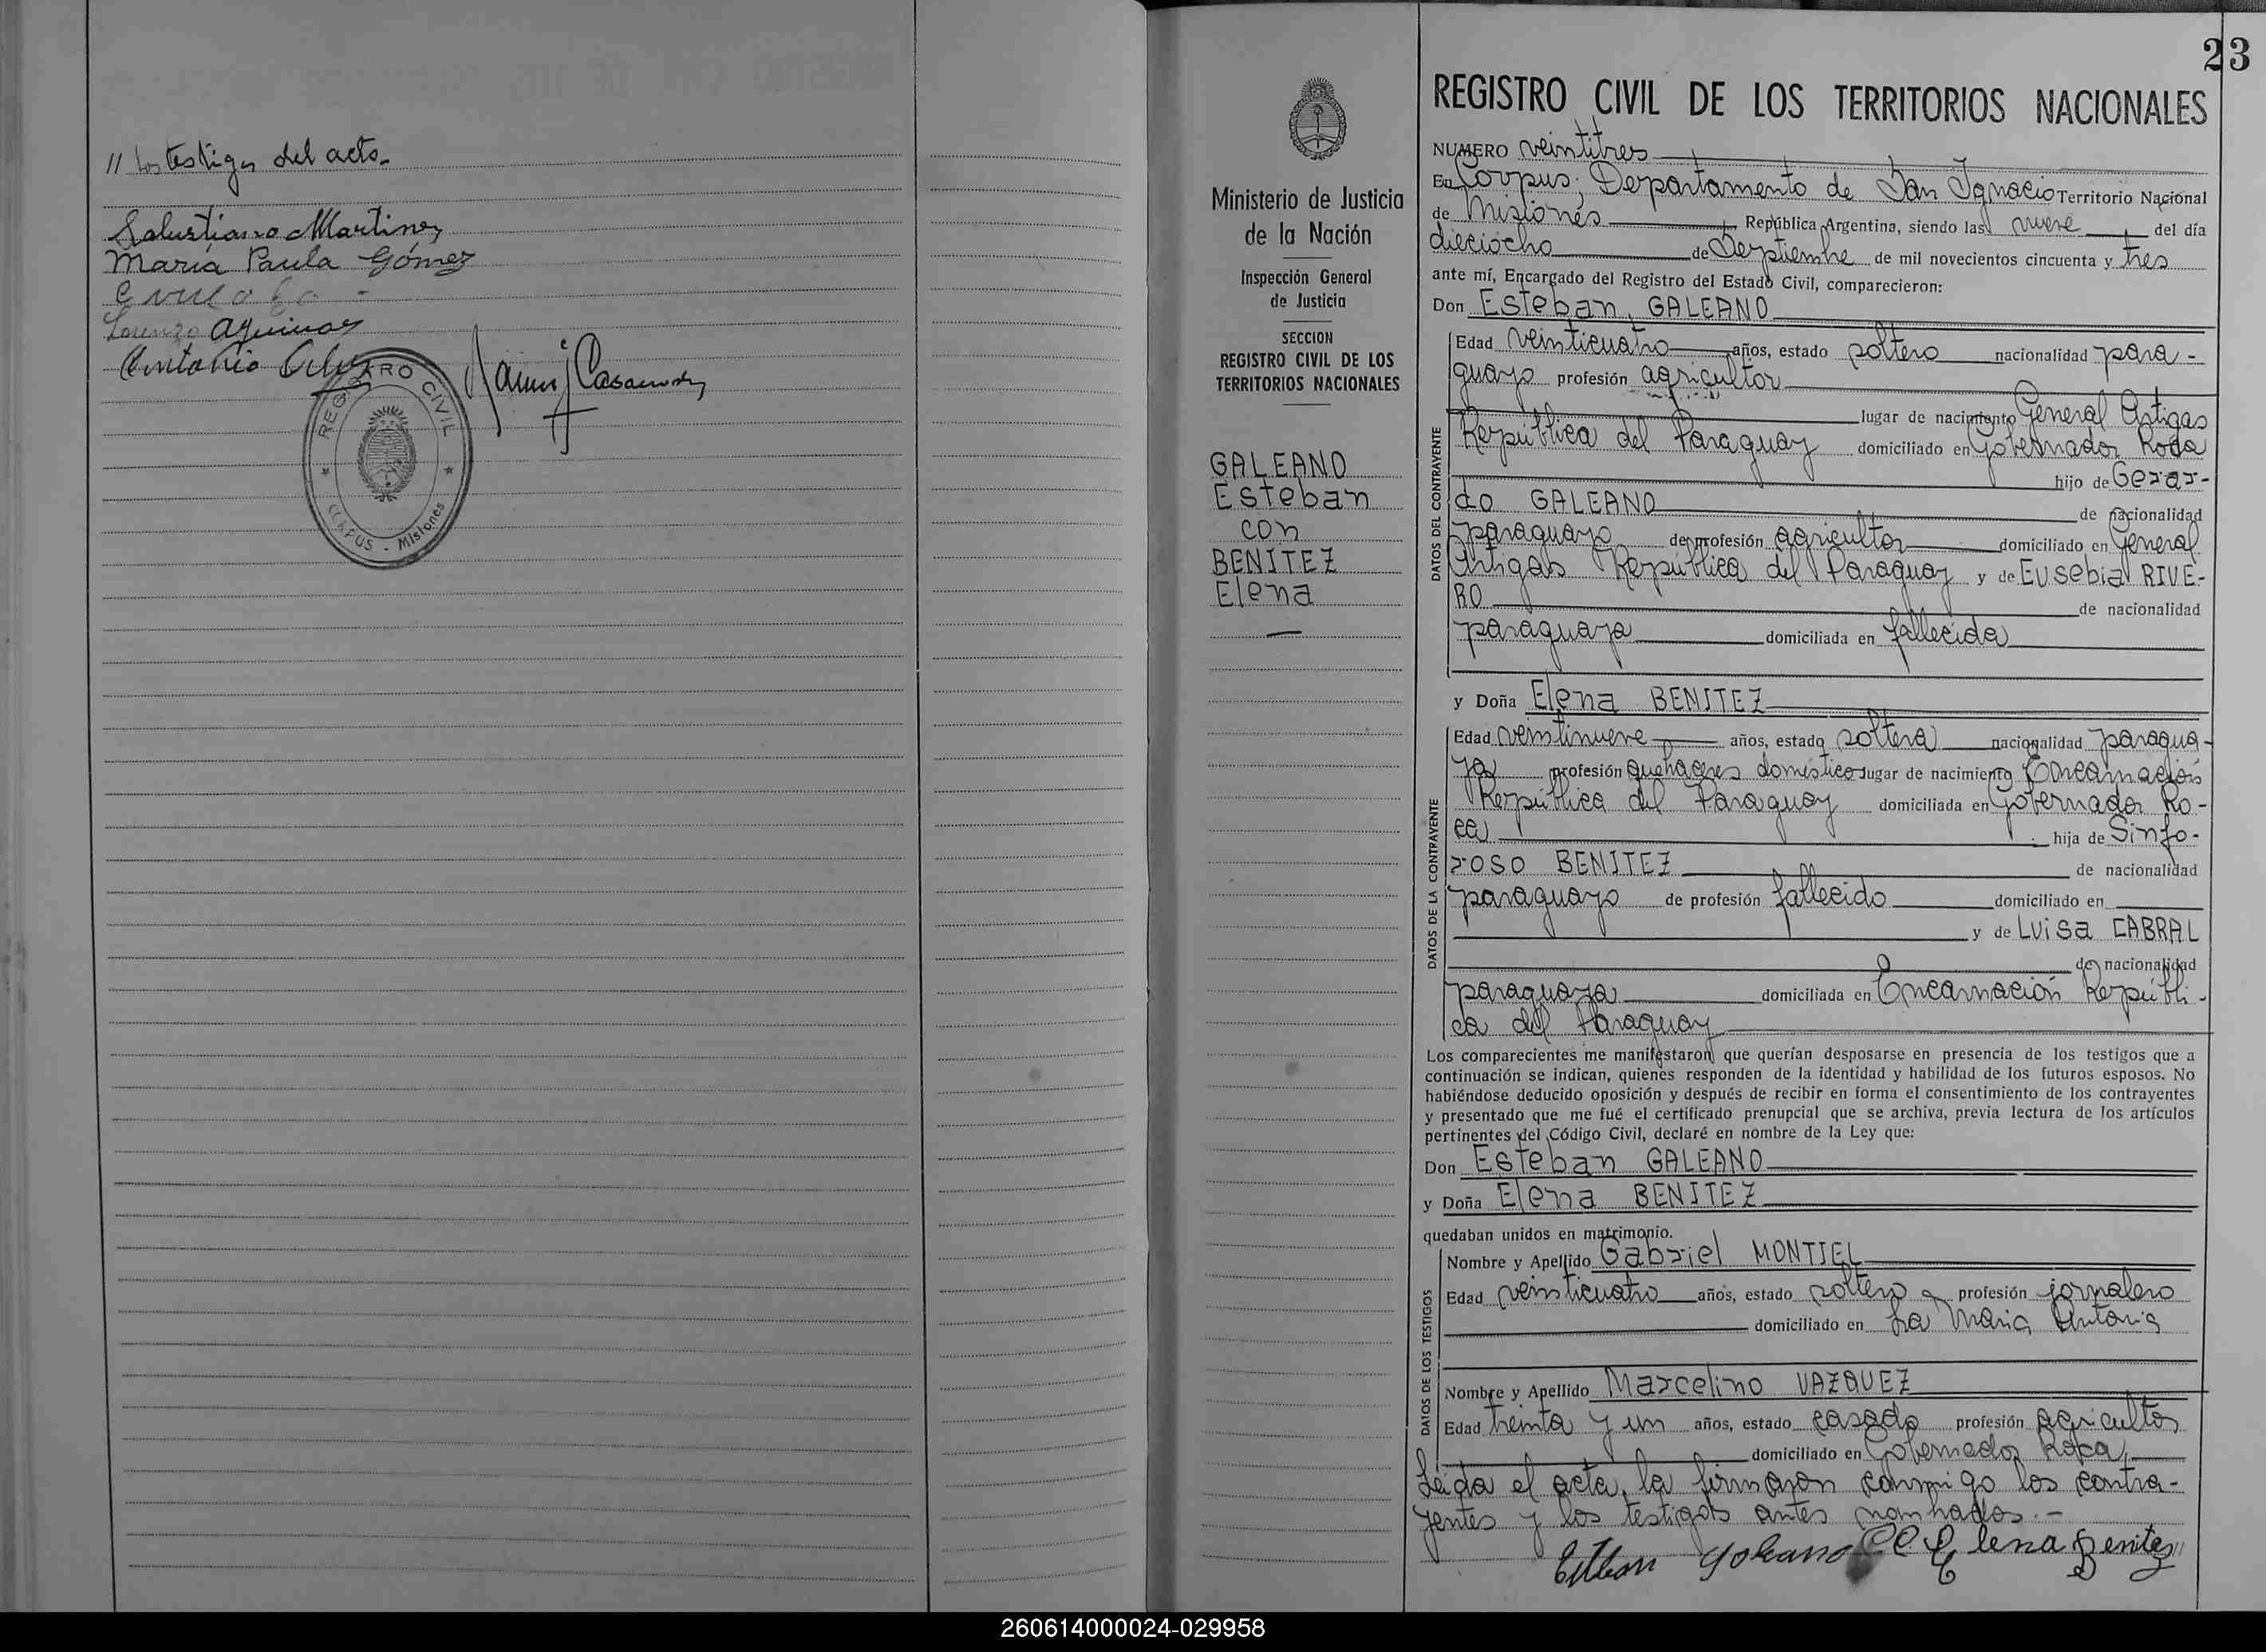 // los testigos del acto.
Salustiano Martinez
María Paula Gómez
Lorenzo Aquino
Antonio
REGISTRO CIVIL
CORPUS - Misiones
23
Ministerio de Justicia
de la Nación
Inspección General
de Justicia
SECCION
REGISTRO CIVIL DE LOS
TERRITORIOS NACIONALES
GALEANO
Esteban
con
BENITEZ
Elena
REGISTRO CIVIL DE LOS TERRITORIOS NACIONALES
NUMERO veintitres
En Corpus, Departamento de San Ignacio Territorio Nacional
de Misiones República Argentina, siendo las nueve del día
dieciocho de Septiembre de mil novecientos cincuenta y tres
ante mí, Encargado del Registro del Estado Civil, comparecieron:
Don Esteban GALEANO
DATOS DEL CONTRAYENTE
Edad veinticuatro años, estado soltero nacionalidad para-
guayo profesión agricultor
lugar de nacimiento General Artigas
República del Paraguay domiciliado en Gobernador Roca
hijo de Gerar-
do GALEANO de nacionalidad
paraguayo de profesión agricultor domiciliado en General
Artigas República del Paraguay y de Eusebia RIVE-
RO de nacionalidad
paraguaya domiciliada en fallecida
y Doña Elena BENITEZ
DATOS DE LA CONTRAYENTE
Edad veintinueve años, estado soltera nacionalidad paragua-
ya profesión quehaceres domésticos lugar de nacimiento Encarnación
República del Paraguay domiciliada en Gobernador Ro-
ca hija de Sinfo-
roso BENITEZ de nacionalidad
paraguayo de profesión fallecido domiciliado en
y de Luisa CABRAL
de nacionalidad
paraguaya domiciliada en Encarnación Repúbli-
ca del Paraguay
Los comparecientes me manifestaron que querían desposarse en presencia de los testigos que a
continuación se indican, quienes responden de la identidad y habilidad de los futuros esposos. No
habiéndose deducido oposición y después de recibir en forma el consentimiento de los contrayentes
y presentado que me fué el certificado prenupcial que se archiva, previa lectura de los artículos
pertinentes del Código Civil, declaré en nombre de la Ley que:
Don Esteban GALEANO
y Doña Elena BENITEZ
quedaban unidos en matrimonio.
DATOS DE LOS TESTIGOS
Nombre y Apellido Gabriel MONTIEL
Edad veinticuatro años, estado soltero profesión jornalero
domiciliado en La Maria Antonia
Nombre y Apellido Marcelino VAZQUEZ
Edad treinta y un años, estado casado profesión agricultor
domiciliado en Gobernador Roca
Leída el acta, la firmaron conmigo los contra-
yentes y los testigos antes nombrados.-
Esteban Galeano Elena Benitez //
260614000024-029958